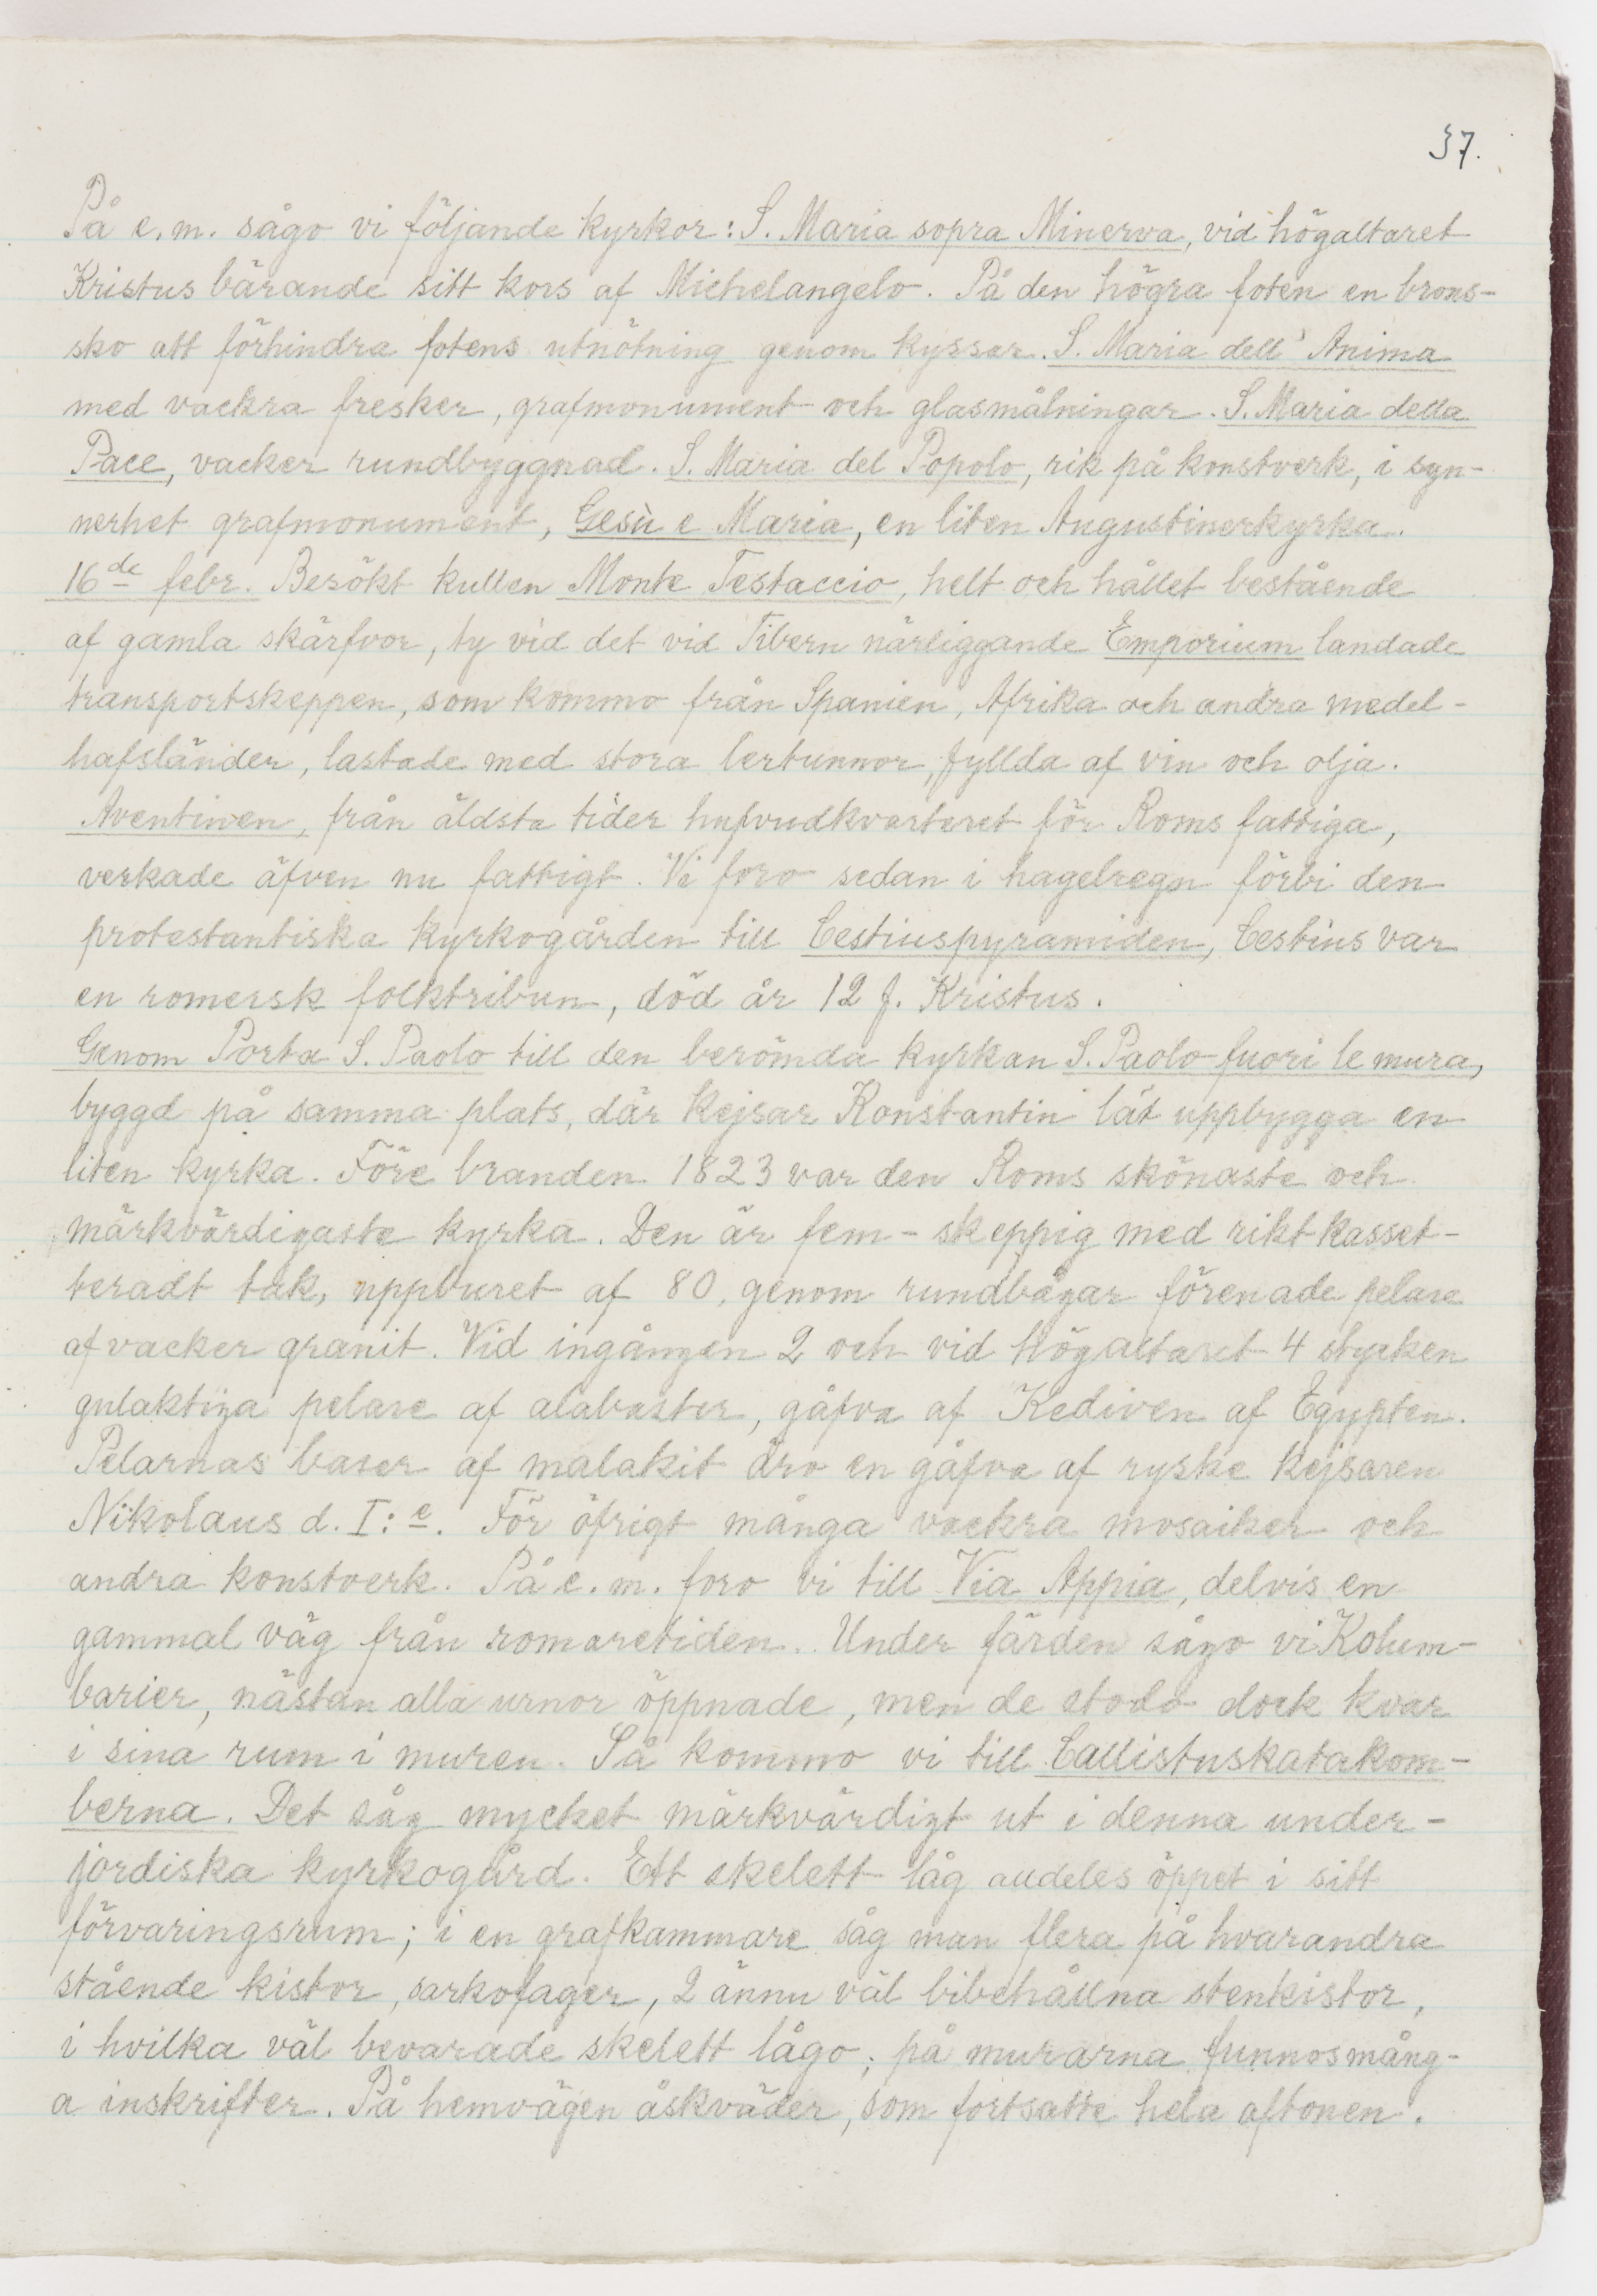 37.
På e.m. sågo vi följande kyrkor: S. Maria sopra Minerva, vid högaltaret
Kristus bärande sitt kors af Michelangelo. På den högra foten en brons-
sko att förhindra fotens utnötning genom kyssar. S. Maria dell' Anima
med vackra fresker, grafmonument och glasmålningar. S. Maria della
Pace, vacker rundbyggnad. S. Maria del Popolo, rik på konstverk, i syn-
nerhet grafmonument, Gesù e Maria, en liten Augustinerkyrka.
16de febr. Besökt kullen Monte Testaccio, helt och hållet bestående
af gamla skärfvor, ty vid det vid Tibern närliggande Emporium landade
transportskeppen, som kommo från Spanien, Afrika och andra medel-
hafsländer, lastade med stora lertunnor, fyllda af vin och olja.
Aventinen, från äldsta tider hufvudkvarteret för Roms fattiga,
verkade äfven nu fattigt. Vi foro sedan i hagelregn förbi den
protestantiska kyrkogården till Cestiuspyramiden, Cestius var
en romersk folktribun, död år 12 f. Kristus.
Genom Porta S. Paolo till den berömda kyrkan S. Paolo fuori le mura,
byggd på samma plats, där kejsar Konstantin lät uppbygga en
liten kyrka. Före branden 1823 var den Roms skönaste och
märkvärdigaste kyrka. Den är fem-skeppig med rikt kasset-
teradt tak, uppburet af 80, genom rundbågar förenade pelare
af vacker granit. Vid ingången 2 och vid högaltaret 4 stycken
gulaktiga pelare af alabaster, gåfva af Kediven af Egypten.
Pelarnas baser af malakit äro en gåfva af ryske kejsaren
Nikolaus d. I:e. För öfrigt många vackra mosaiker och
andra konstverk. På e.m. foro vi till Via Appia, delvis en
gammal väg från romaretiden. Under färden sågo vi Kolum-
barier, nästan alla urnor öppnade, men de stodo dock kvar
i sina rum i muren. Så kommo vi till Callistuskatakom-
berna. Det såg mycket märkvärdigt ut i denna under-
jordiska kyrkogård. Ett skelett låg alldeles öppet i sitt
förvaringsrum; i en grafkammare såg man flera på hvarandra
stående kistor, sarkofager, 2 ännu väl bibehållna stenkistor,
i hvilka väl bevarade skelett lågo; på murarna funnos mång-
a inskrifter. På hemvägen åskväder, som fortsatte hela aftonen.